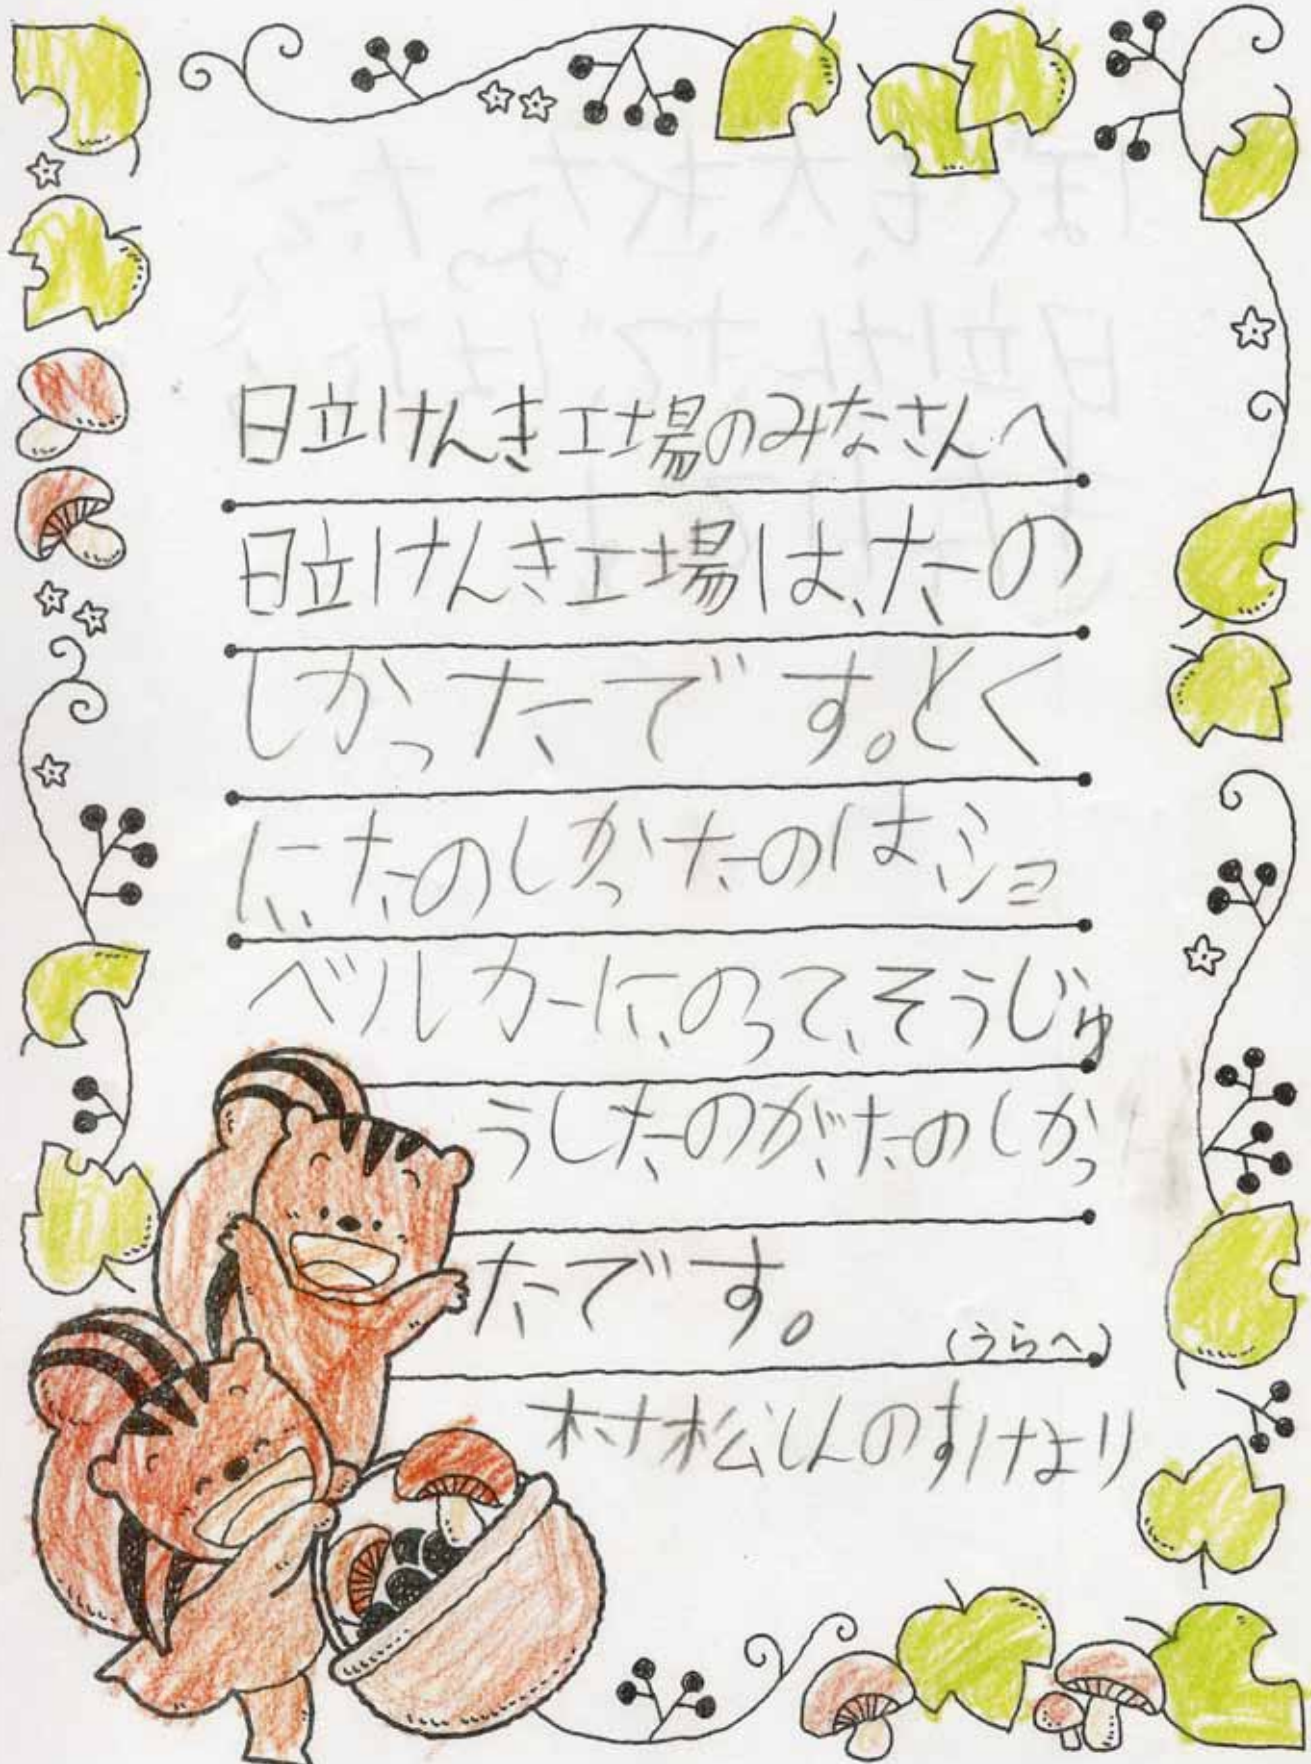 日立けんき工場のみなさんへ
日立けんき工場は、たの
しかったです。とく
に、たのしかったのは、ショ
ベルカーに、のって、そうじゅ
うしたのが、たのしかっ
たです。
(うらへ)
村松しんのすけより